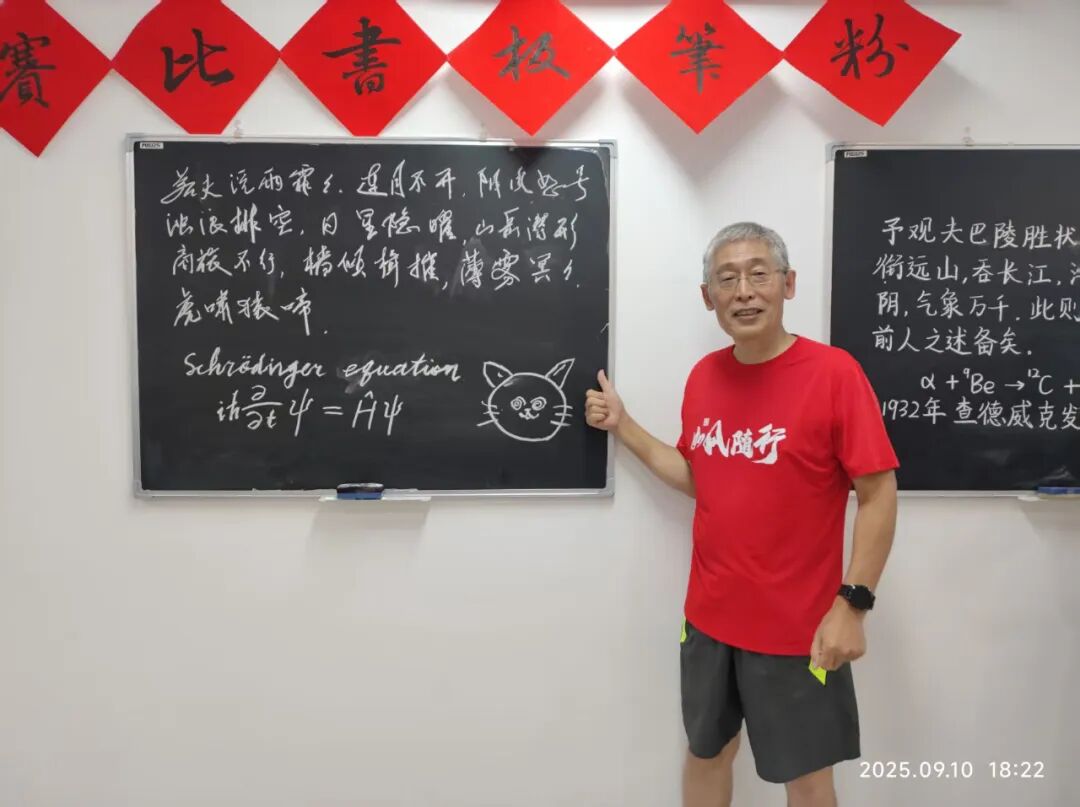 粉筆板書比賽
若夫淫雨霏々,连月不开,阴风怒号
浊浪排空,日星隐曜,山岳潜形
商旅不行,樯倾楫摧,薄雾冥々,
虎啸猿啼.
Schrödinger equation
iħ ∂/∂t ψ = Ĥψ
如风随行
予观夫巴陵胜状
衔远山,吞长江,
阴,气象万千.此则
前人之述备矣.
α + ⁹Be → ¹²C +
1932年 查德威克发
2025.09.10 18:22